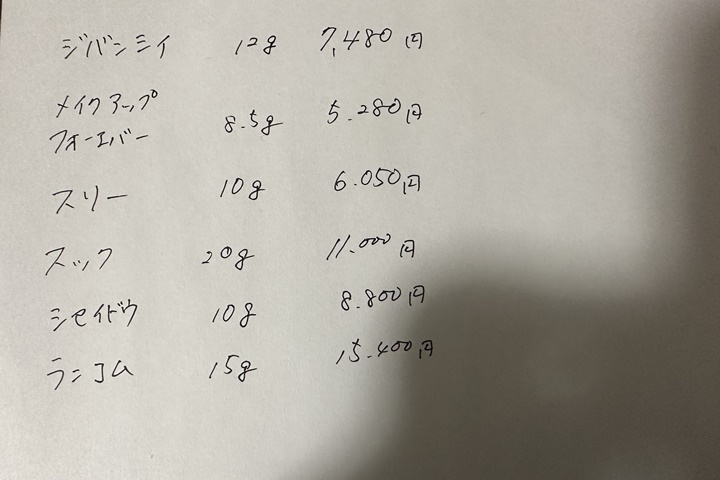 ジバンシイ 12g 7,480円
メイクアップ
フォーエバー 8.5g 5.280円
スリー 10g 6.050円
スック 20g 11.000円
シセイドウ 10g 8.800円
ランコム 15g 15.400円